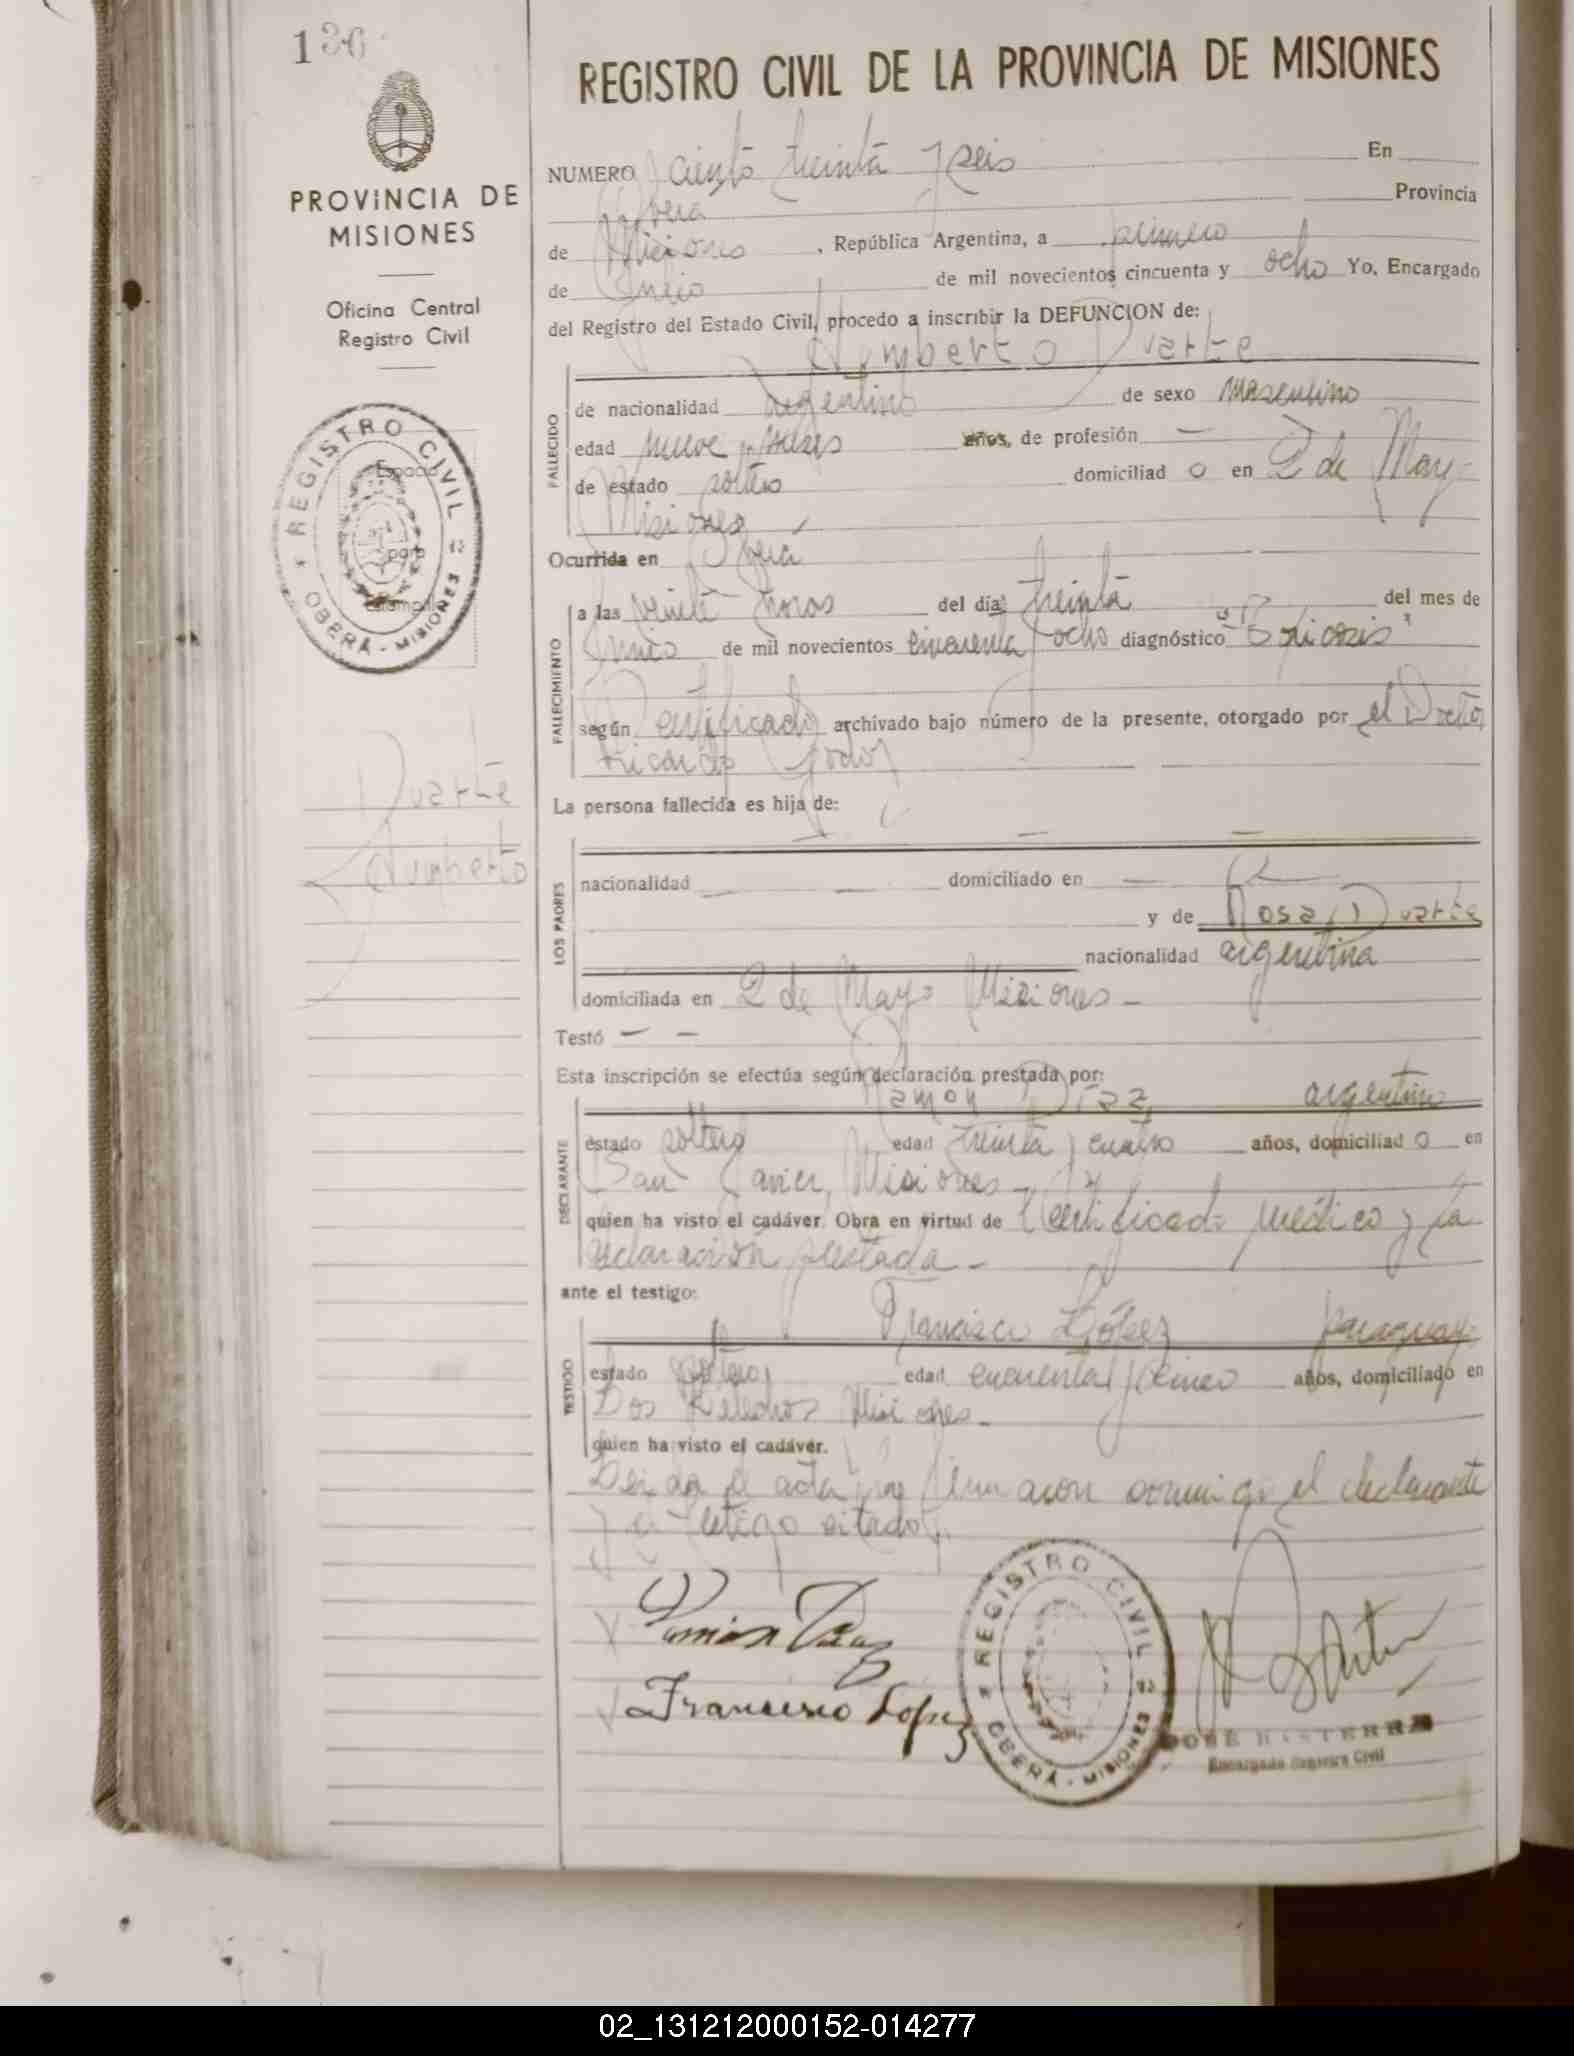 136
PROVINCIA DE
MISIONES
Oficina Central
Registro Civil
REGISTRO CIVIL
Espacio
para
Estampilla
OBERÁ - MISIONES
Duarte
Humberto
REGISTRO CIVIL DE LA PROVINCIA DE MISIONES
NUMERO ciento treinta y seis En
Oberá Provincia
de Misiones, República Argentina, a primero
de Junio de mil novecientos cincuenta y ocho Yo, Encargado
del Registro del Estado Civil, procedo a inscribir la DEFUNCION de:
Humberto Duarte
FALLECIDO
de nacionalidad argentino de sexo masculino
edad nueve meses años, de profesión —
de estado soltero domiciliado en 2 de Mayo
Misiones
Ocurrida en Oberá
FALLECIMIENTO
a las veinte horas del día treinta del mes de
de mil novecientos cincuenta y ocho diagnóstico
según Certificado archivado bajo número de la presente, otorgado por el Doctor
Ricardo Godoy
La persona fallecida es hija de:
— — —
LOS PADRES
nacionalidad — — domiciliado en —
y de Rosa Duarte
nacionalidad argentina
domiciliada en 2 de Mayo Misiones -
Testó — —
Esta inscripción se efectúa según declaración prestada por:
Ramon Diaz, argentino
DECLARANTE
estado soltero edad treinta y cuatro años, domiciliado en
San Javier, Misiones -
quien ha visto el cadáver. Obra en virtud de Certificado médico y la
declaración prestada -
ante el testigo:
Francisco López paraguayo
TESTIGO
estado soltero edad cincuenta y cinco años, domiciliado en
Dos Misiones -
quien ha visto el cadáver.
Leida el acta la firmaron conmigo el declarante
y el testigo citados.
Ramón Diaz
Francisco Lopez
REGISTRO CIVIL
OBERÁ - MISIONES
JOSÉ BASTERRA
Encargado Registro Civil
02_131212000152-014277